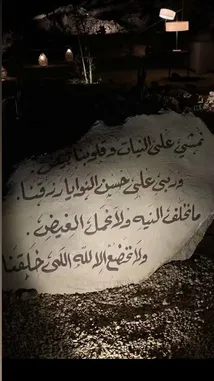 نمشي على النيات وقلوبنا تبيض.
وربي على حسن النوايا رزقنا.
ماتخلف النيه ولا تحمل الغيض.
ولا تخضع الا لله اللي خلقنا